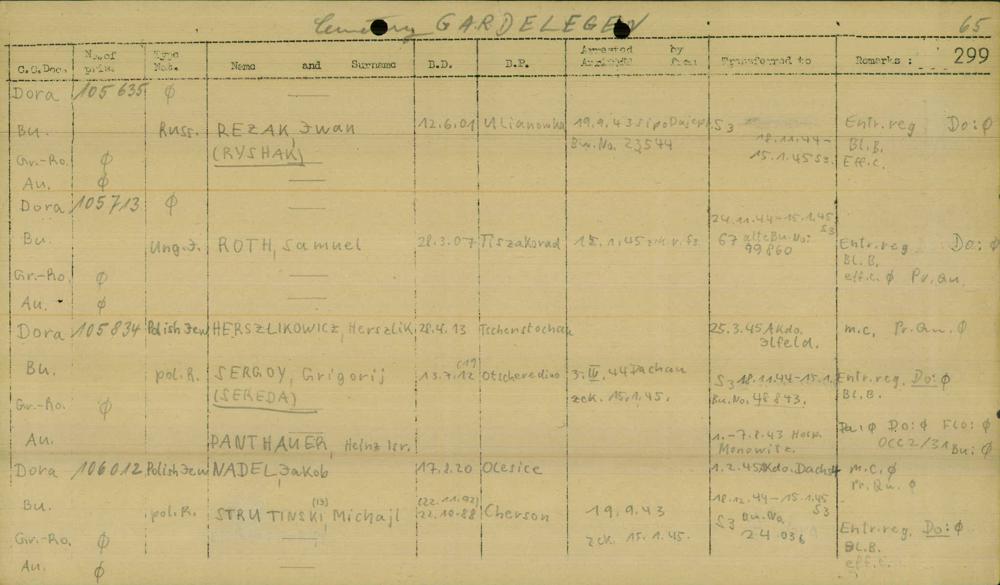 Cemetery GARDELEGEN
65
C.C.Doc. No. of pris. Type Nat. Name and Surname B.D. B.P. Arrested Arrived by from Transferred to Remarks : 299
Dora 105635 φ —
Bu. Russ. REZAK Iwan 12.6.01 Ulianowka 19.9.43 S3 Entr.reg Do:φ
(RYSHAK) Bu.No. 23544 18.11.44- Bl.B.
Gr.-Ro. φ 15.1.45 S3. Eff.c.
Au. φ —
Dora 105713 φ —
24.11.44-15.1.45
Bu. Ung.J. ROTH, Samuel 28.3.07 Tiszakorad 15.1.45 zck.v.S3 67 alte Bu.No: S3 Entr.reg. Do: φ
99860 Bl.B.
Gr.-Ro. φ — eff.c. φ Pr.Qu.
Au. φ —
Dora 105834 Polish Jew HERSZLIKOWICZ, Herszlik 28.4.13 Tschenstochau 25.3.45 Akdo. m.c, Pr.Qu. φ
Ilfeld.
Bu. pol.R. SERGOY, Grigorij (19) 13.7.12 Otscheredino 3.III.44 Dachau S3 18.11.44-15.1. Entr.reg. Do: φ
(SEREDA) zck. 15.1.45. Bu.No. 48843. Bl.B.
Gr.-Ro. φ —
Au. PANTHAUER, Heinz Isr. 1.-7.8.43 Hosp. Do: φ Flo: φ
Monowitz. OCC2/31 Bu: φ
Dora 106012 Polish Jew NADEL, Jakob 17.8.20 Olesice 1.2.45 Akdo. m.c, φ
Pr.Qu. φ
Bu. pol.R. STRUTINSKI (13) Michajl 22.10.88 Cherson 19.9.43 18.12.44-15.1.45 S3
S3 Bu.No. Entr.reg. Do: φ
Gr.-Ro. φ — zck. 15.1.45. 24036 Bl.B.
Au. φ — eff.c.